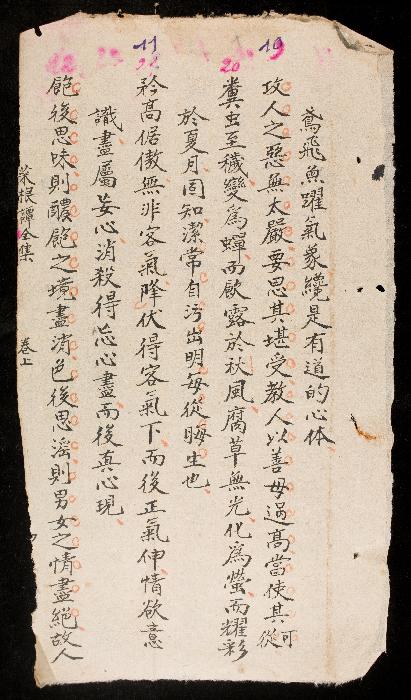 鳶飛魚躍氣象纔是有道的心体
19
攻人之惡無太嚴要思其堪受教人以善毋過高當使其可從
20
糞虫至穢變為蟬而飲露於秋風腐草無光化為螢而耀彩
於夏月固知潔常自污出明每從晦生也
11
矜高倨傲無非客氣降伏得客氣下而後正氣伸情欲意
識盡屬妄心消殺得忘心盡而後真心現
飽後思味則醲飽之境盡消色後思淫則男女之情盡絕故人
菜根譚全集 卷上